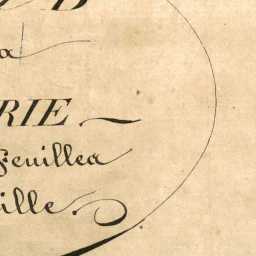 D
a
RIE
Feuillea
ille.